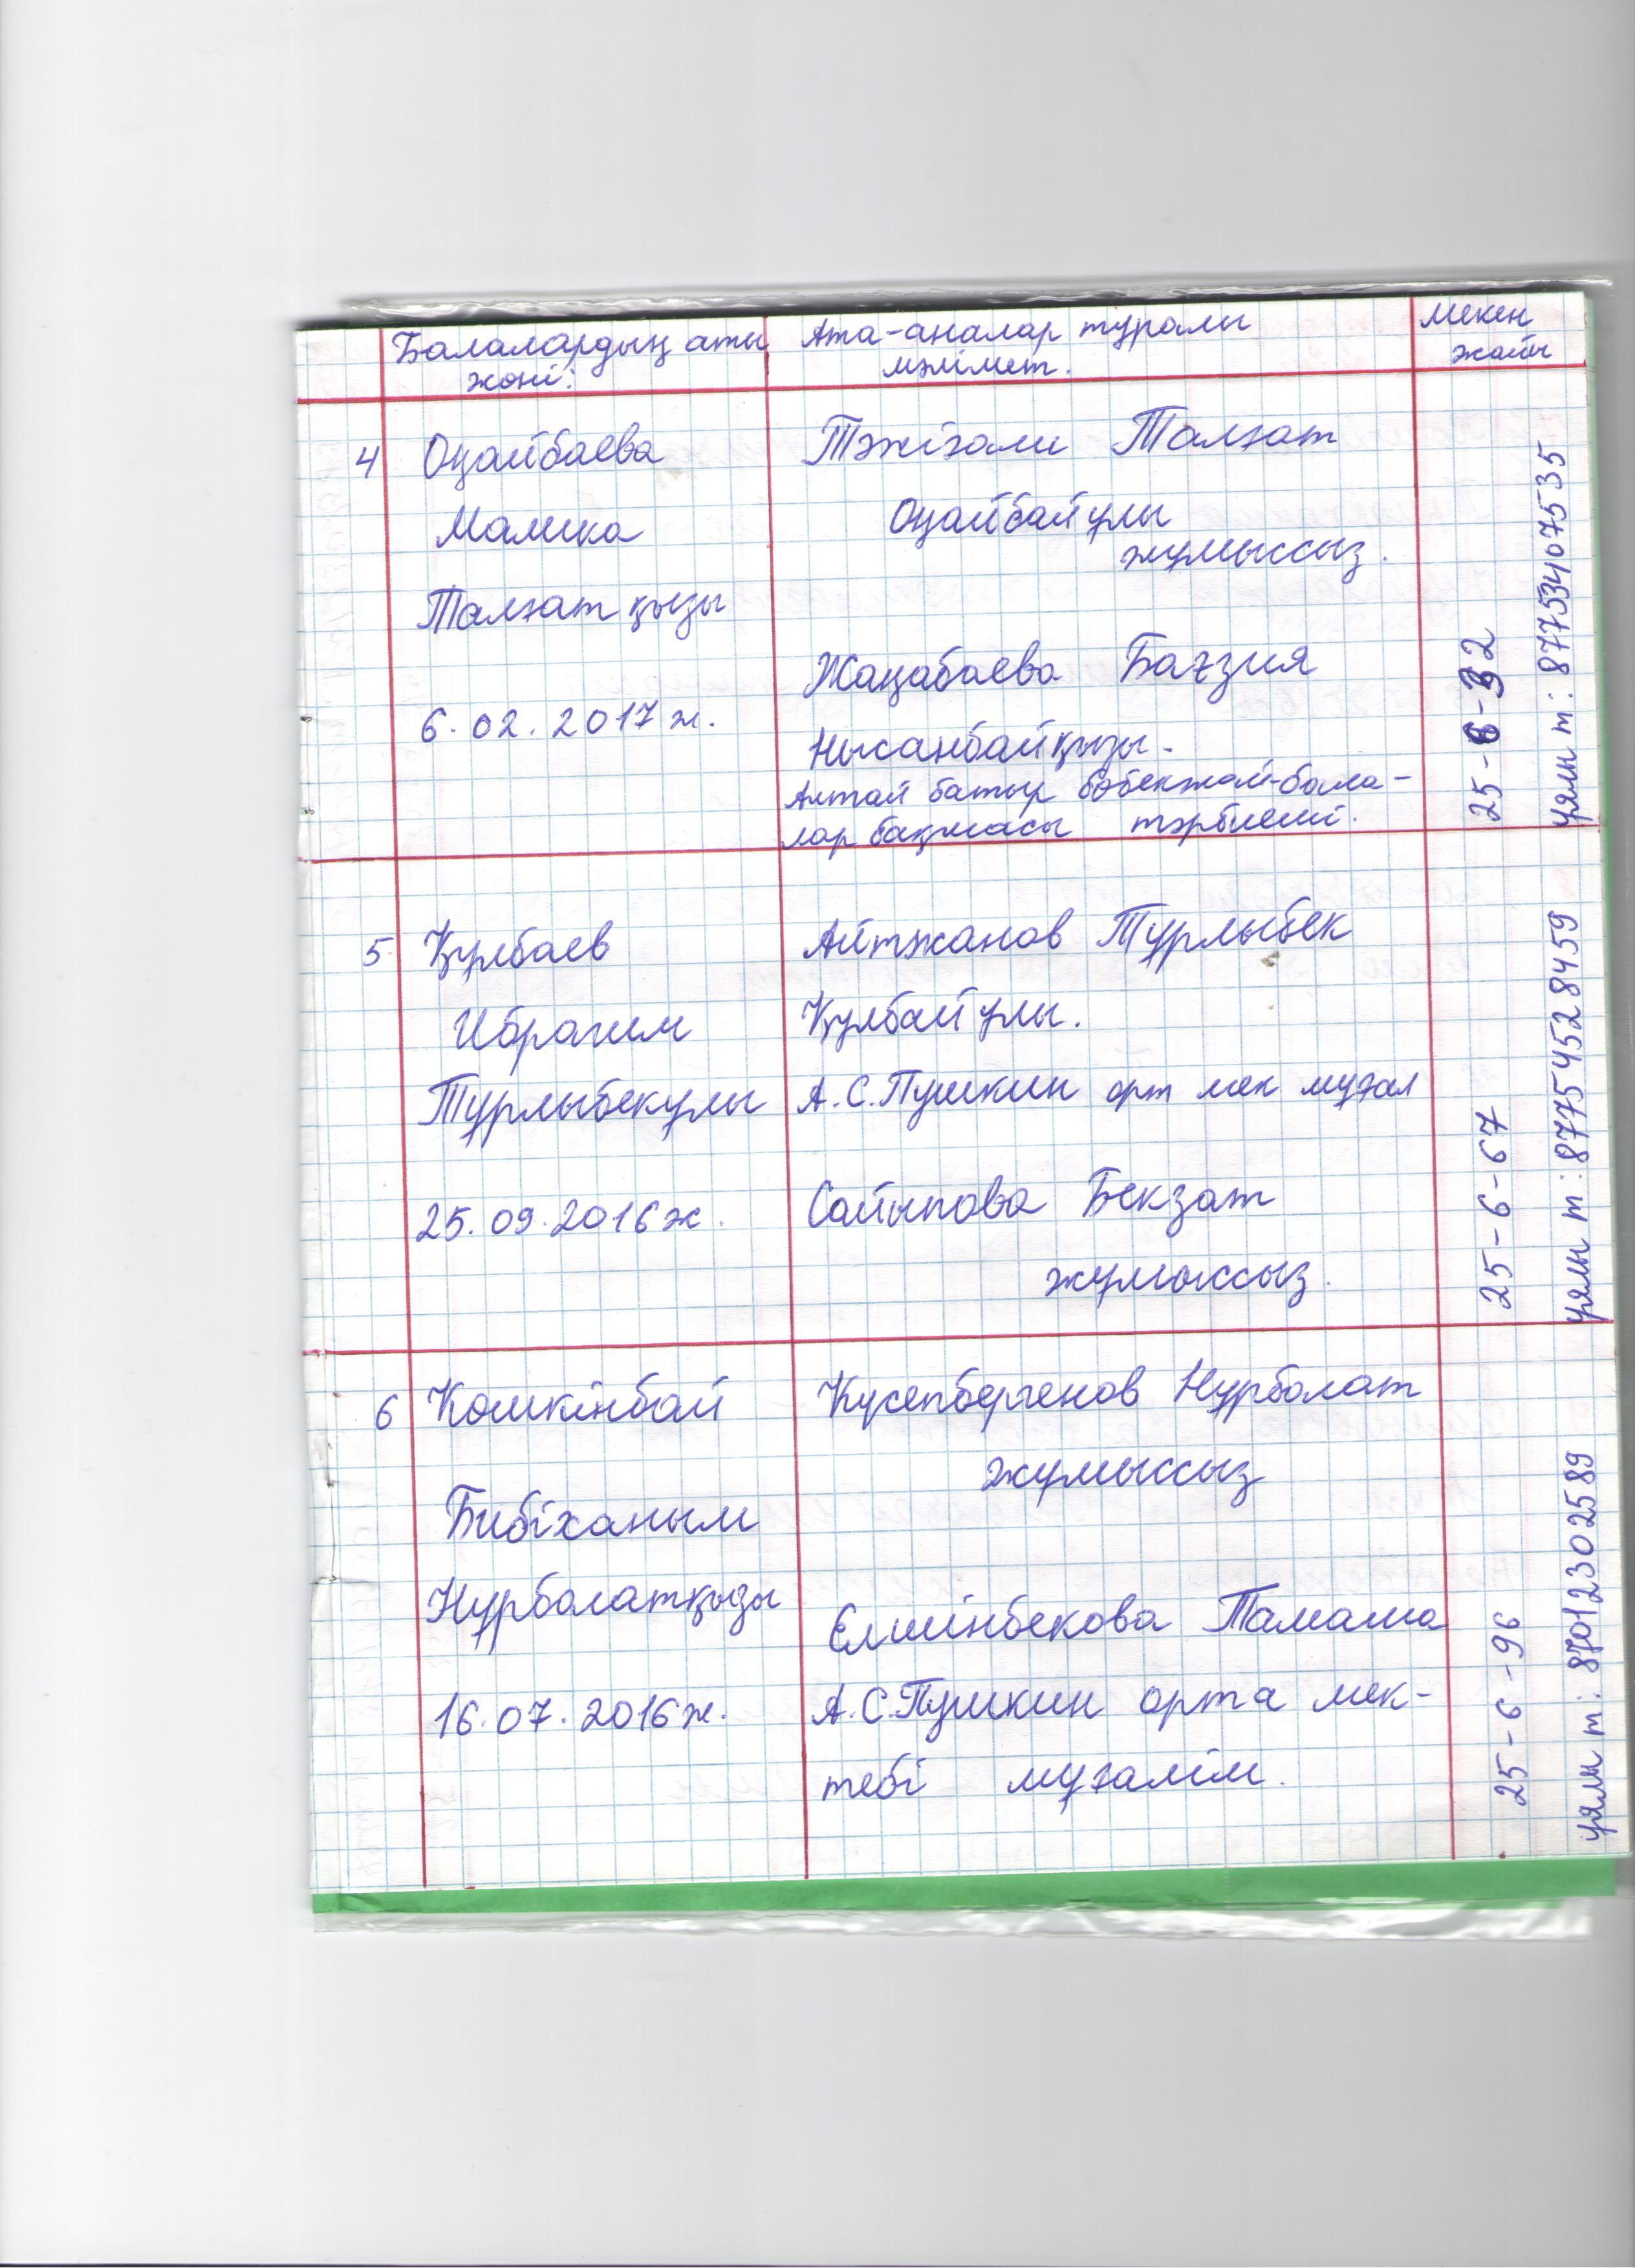 Балалардың аты
жөні:
Ата-аналар туралы
мәлімет.
Мекен
жайы
4 Оңайбаева
Малика
Талғат қызы
6.02.2017ж.
Тәжіғали Талғат
Оңайбайұлы
жұмыссыз.
Жаңабаева Бағзия
Нысанбайқызы.
Алтай батыр бөбекжай-бала-
лар бақшасы тәрбиеші.
25-6-32
ұялы т: 87753407535
5. Құлбаев
Ибрагим
Тұрлыбекұлы
25.09.2016ж.
Айтжанов Тұрлыбек
Құлбайұлы.
А.С.Пушкин орт мек мұғал
Сайыпова Бекзат
жұмыссыз.
25-6-67
ұялы т: 87754528459
6 Көшкінбай
Бибіханым
Нұрболатқызы
16.07.2016ж.
Күсепбергенов Нұрболат
жұмыссыз
Елшінбекова Тамаша
А.С.Пушкин орта мек-
тебі мұғалім.
25-6-96
ұялы т: 87012302589